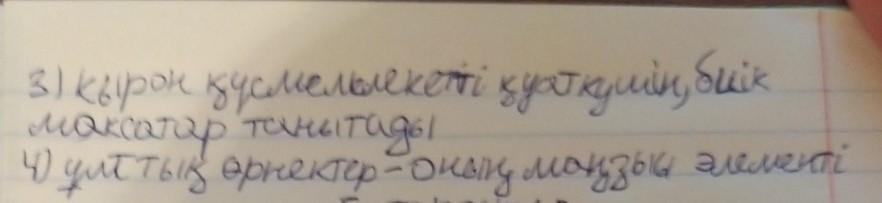 3) қырон құсмемлекетті қуаткүшін, биік
мақсатар танытады
4) ұлттық өрнектер - оның маңзыы элементі